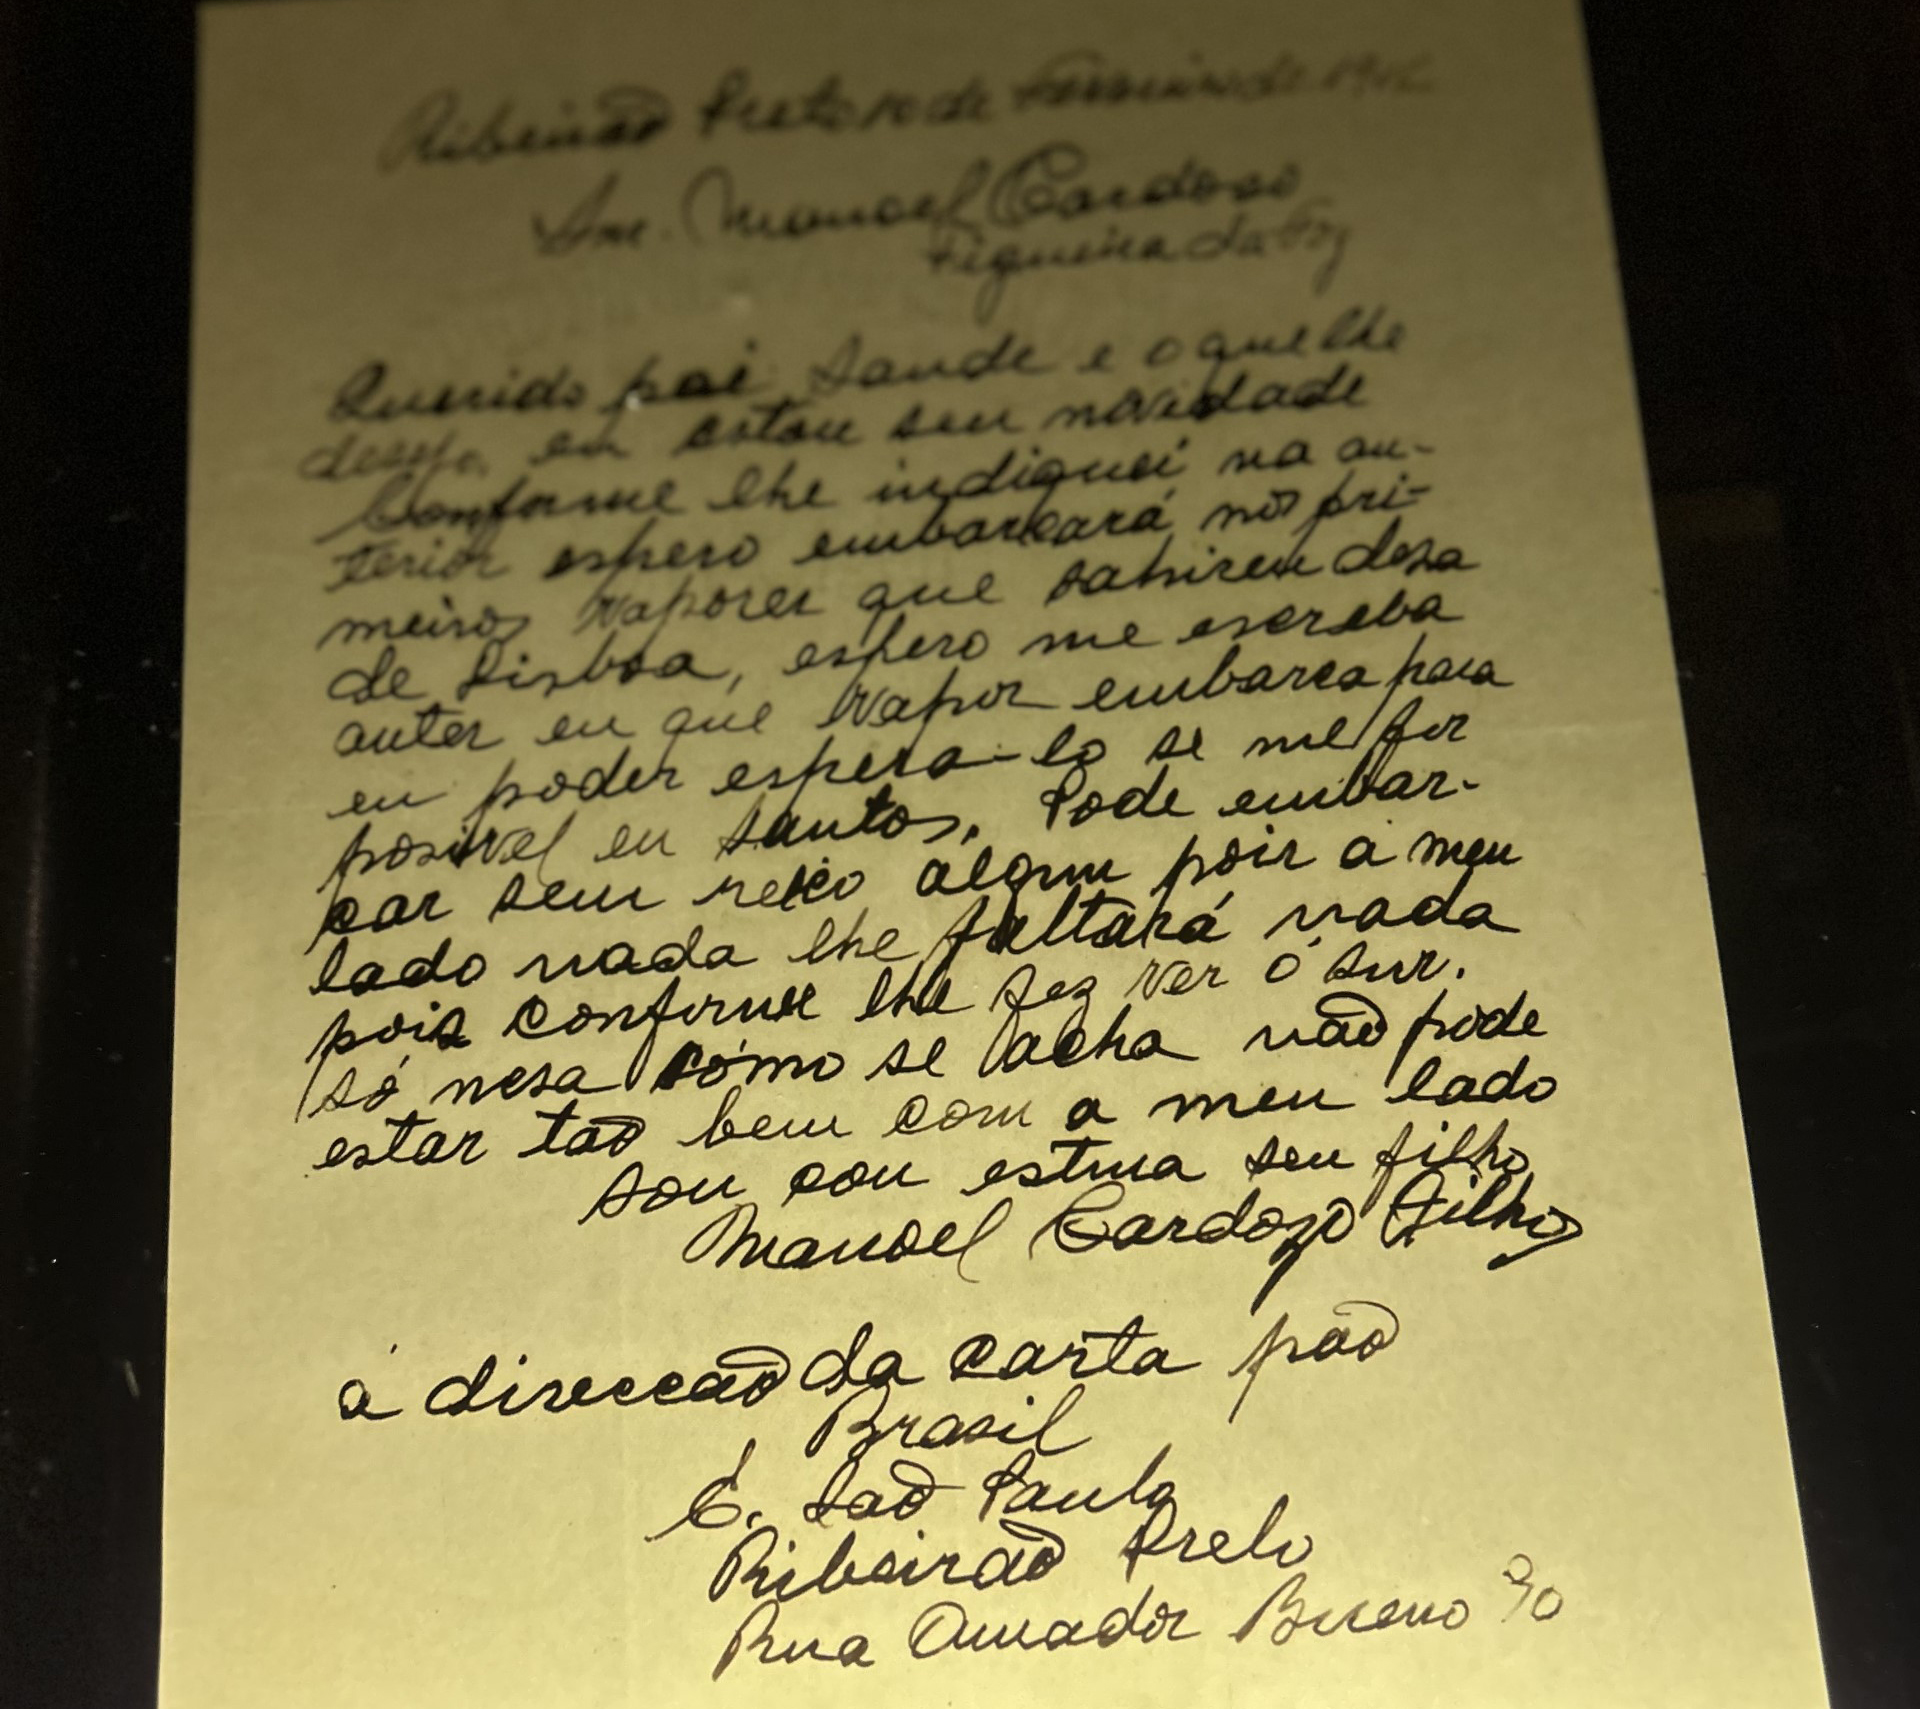 Ribeirão Preto 10 de Fevereiro de 1912
Snr. Manoel Cardoso
Figueira da Foz
Querido pai Saude e o que lhe
desejo, eu estou sen novidade
Conforme lhe indiquei na an-
terior espero embarcará nos pri-
meiros vapores que sahiren desa
de Lisboa, espero me escreba
antes en que vapor embarca para
eu poder espera-lo se me for
posivel en Santos. Pode embar-
car sem reseio algum pois a meu
lado nada lhe faltará nada
pois conforme lhe fez ver ó snr.
só nesa cómo se acha não pode
estar tão bem com a meu lado
sou con estima seu filho
Manoel Cardozo Filho
á direccão da carta pão
Brasil
E. São Paulo
Ribeirão Preto
Rua Amador Bueno 90